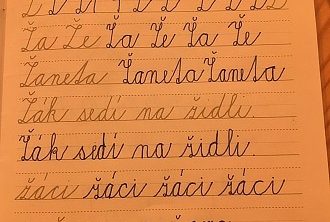 Ža Že Ža Že Ža Že
Žaneta Žaneta Žaneta
Žák sedí na židli.
Žák sedí na židli.
žáci žáci žáci žáci